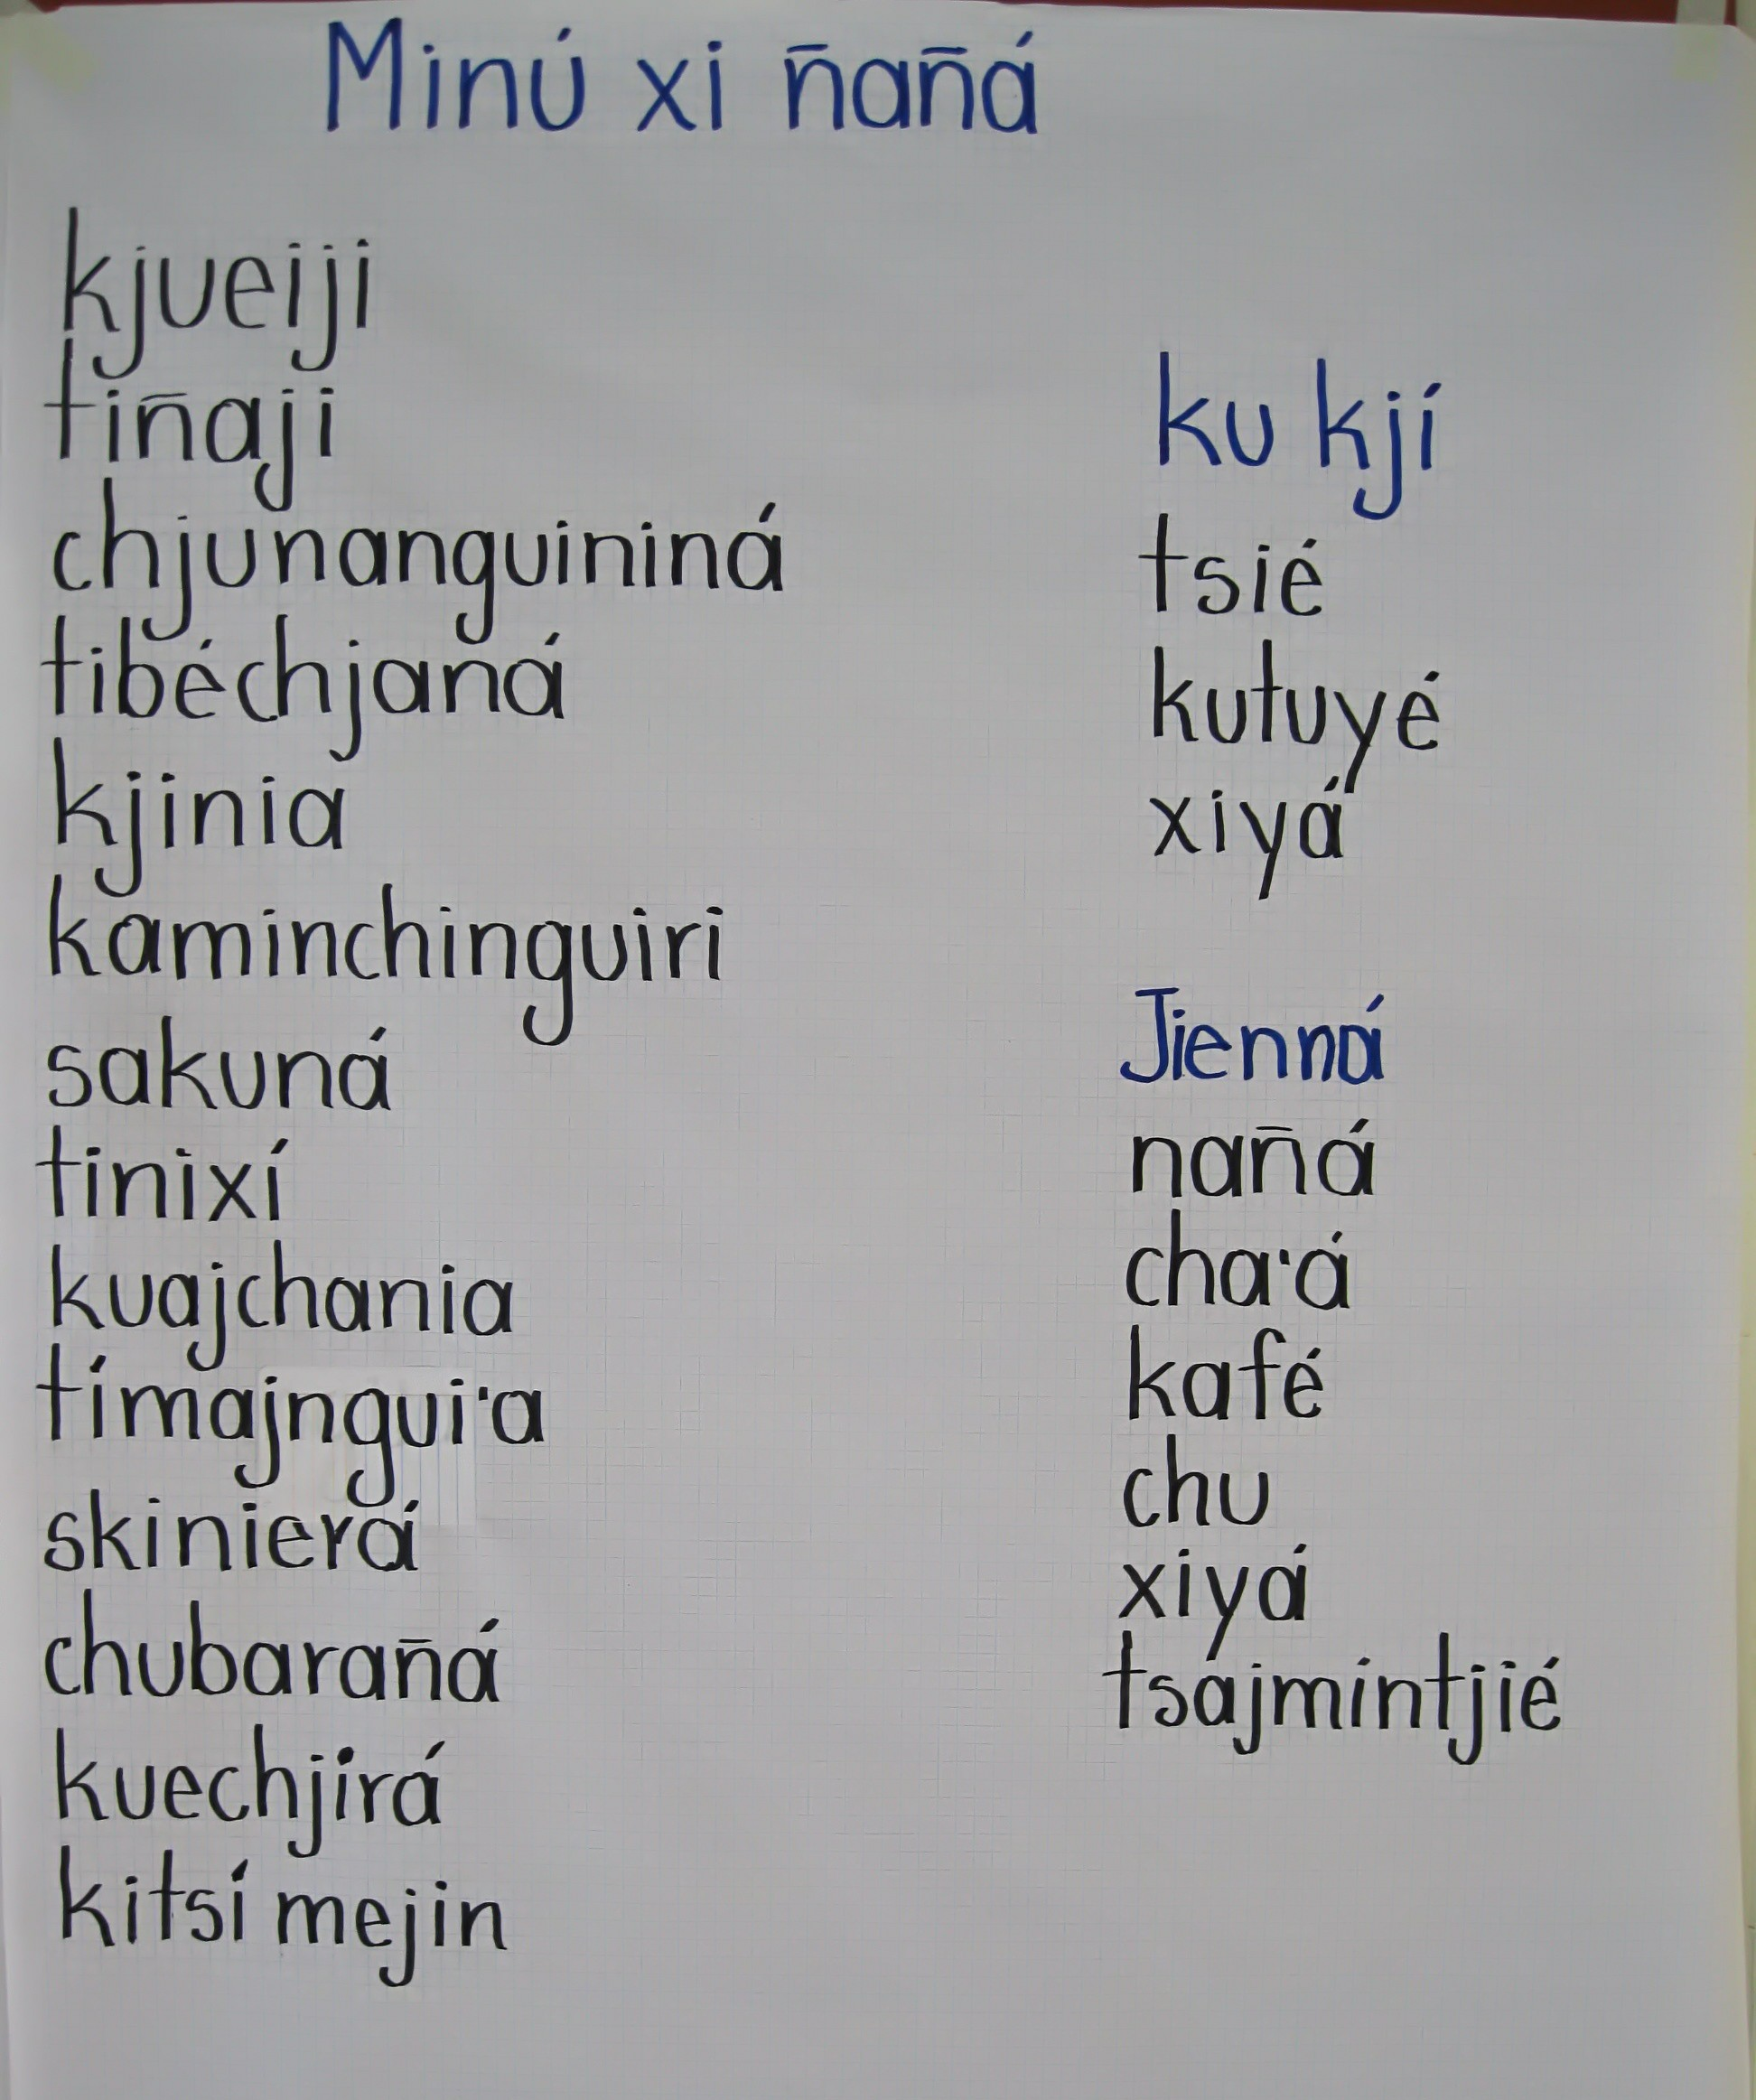 Minú xi ñañá
kjueiji
tiñaji
chjunanguininá
tibéchjaná
kjinia
kaminchinguiri
sakuná
tinixí
kuajchania
tímajngui'a
skinierá
chubarañá
kuechjirá
kitsí mejin
ku kjí
tsié
kutuyé
xiyá
Jienná
nañá
cha'á
kafé
chu
xiyá
tsájmíntjié